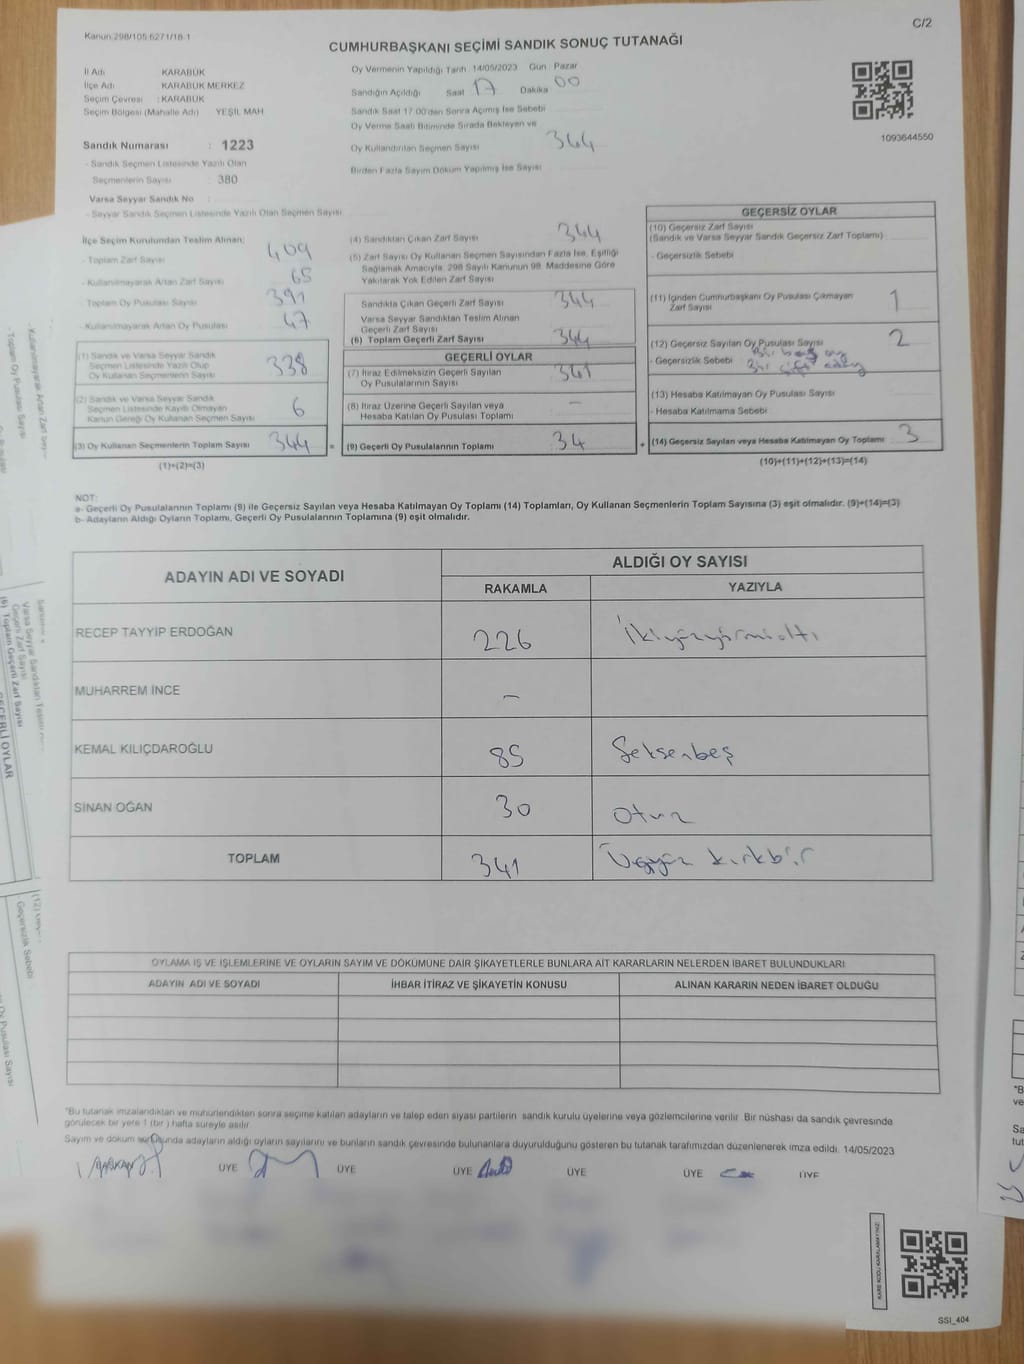 C/2
Kanun:298/105.6271/18-1
CUMHURBAŞKANI SEÇİMİ SANDIK SONUÇ TUTANAĞI
İl Adı KARABÜK
İlçe Adı KARABÜK MERKEZ
Seçim Çevresi : KARABÜK
Seçim Bölgesi (Mahalle Adı) YEŞİL MAH
Oy Vermenin Yapıldığı Tarih 14/05/2023 Gün Pazar
Sandığın Açıldığı Saat 17 Dakika 00
Sandık Saat 17:00'den Sonra Açılmış İse Sebebi
Oy Verme Saati Bitiminde Sırada Bekleyen ve
Oy Kullandırılan Seçmen Sayısı 344
Birden Fazla Sayım Döküm Yapılmış İse Sayısı
1093644550
Sandık Numarası : 1223
- Sandık Seçmen Listesinde Yazılı Olan
Seçmenlerin Sayısı : 380
Varsa Seyyar Sandık No
- Seyyar Sandık Seçmen Listesinde Yazılı Olan Seçmen Sayısı
İlçe Seçim Kurulundan Teslim Alınan;
- Toplam Zarf Sayısı 409
- Kullanılmayarak Artan Zarf Sayısı 65
- Toplam Oy Pusulası Sayısı 391
- Kullanılmayarak Artan Oy Pusulası 47
(1) Sandık ve Varsa Seyyar Sandık
Seçmen Listesinde Yazılı Olup
Oy Kullanan Seçmenlerin Sayısı 338
(2) Sandık ve Varsa Seyyar Sandık
Seçmen Listesinde Kayıtlı Olmayan
Kanun Gereği Oy Kullanan Seçmen Sayısı 6
(3) Oy Kullanan Seçmenlerin Toplam Sayısı 344 =
(1)+(2)=(3)
(4) Sandıktan Çıkan Zarf Sayısı 344
(5) Zarf Sayısı Oy Kullanan Seçmen Sayısından Fazla İse, Eşitliği
Sağlamak Amacıyla, 298 Sayılı Kanunun 98. Maddesine Göre
Yakılarak Yok Edilen Zarf Sayısı
Sandıkta Çıkan Geçerli Zarf Sayısı 344
Varsa Seyyar Sandıktan Teslim Alınan
Geçerli Zarf Sayısı
(6) Toplam Geçerli Zarf Sayısı 344
GEÇERLİ OYLAR
(7) İtiraz Edilmeksizin Geçerli Sayılan
Oy Pusulalarının Sayısı 341
(8) İtiraz Üzerine Geçerli Sayılan veya
Hesaba Katılan Oy Pusulası Toplamı –
(9) Geçerli Oy Pusulalarının Toplamı 34 +
GEÇERSİZ OYLAR
(10) Geçersiz Zarf Sayısı
(Sandık ve Varsa Seyyar Sandık Geçersiz Zarf Toplamı)
- Geçersizlik Sebebi
(11) İçinden Cumhurbaşkanı Oy Pusulası Çıkmayan
Zarf Sayısı 1
(12) Geçersiz Sayılan Oy Pusulası Sayısı 2
- Geçersizlik Sebebi
(13) Hesaba Katılmayan Oy Pusulası Sayısı
- Hesaba Katılmama Sebebi
(14) Geçersiz Sayılan veya Hesaba Katılmayan Oy Toplamı 3
(10)+(11)+(12)+(13)=(14)
NOT:
a- Geçerli Oy Pusulalarının Toplamı (9) ile Geçersiz Sayılan veya Hesaba Katılmayan Oy Toplamı (14) Toplamları, Oy Kullanan Seçmenlerin Toplam Sayısına (3) eşit olmalıdır. (9)+(14)=(3)
b- Adayların Aldığı Oyların Toplamı, Geçerli Oy Pusulalarının Toplamına (9) eşit olmalıdır.
ADAYIN ADI VE SOYADI
ALDIĞI OY SAYISI
RAKAMLA YAZIYLA
RECEP TAYYİP ERDOĞAN 226 İkiyüzyirmialtı
MUHARREM İNCE –
KEMAL KILIÇDAROĞLU 85 Seksenbeş
SİNAN OĞAN 30 Otuz
TOPLAM 341 Üçyüz kırkbir
OYLAMA İŞ VE İŞLEMLERİNE VE OYLARIN SAYIM VE DÖKÜMÜNE DAİR ŞİKAYETLERLE BUNLARA AİT KARARLARIN NELERDEN İBARET BULUNDUKLARI
ADAYIN ADI VE SOYADI İHBAR İTİRAZ VE ŞİKAYETİN KONUSU ALINAN KARARIN NEDEN İBARET OLDUĞU
*Bu tutanak imzalandıktan ve mühürlendikten sonra seçime katılan adayların ve talep eden siyasi partilerin sandık kurulu üyelerine veya gözlemcilerine verilir. Bir nüshası da sandık çevresinde
görülecek bir yere 1 (bir) hafta süreyle asılır.
Sayım ve döküm sonunda adayların aldığı oyların sayılarını ve bunların sandık çevresinde bulunanlara duyurulduğunu gösteren bu tutanak tarafımızdan düzenlenerek imza edildi. 14/05/2023
BAŞKAN ÜYE ÜYE ÜYE ÜYE ÜYE ÜYE
KARE KODU KARALAMAYINIZ
SSI_404